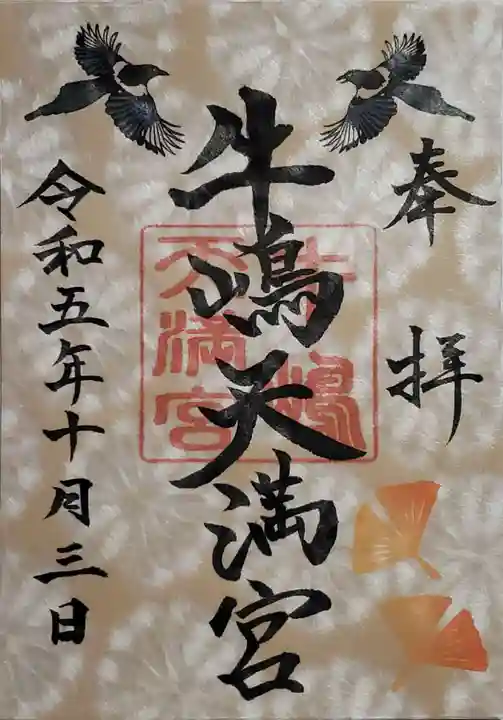 奉拝
牛嶋天満宮
牛嶋
天満宮
令和五年十月三日